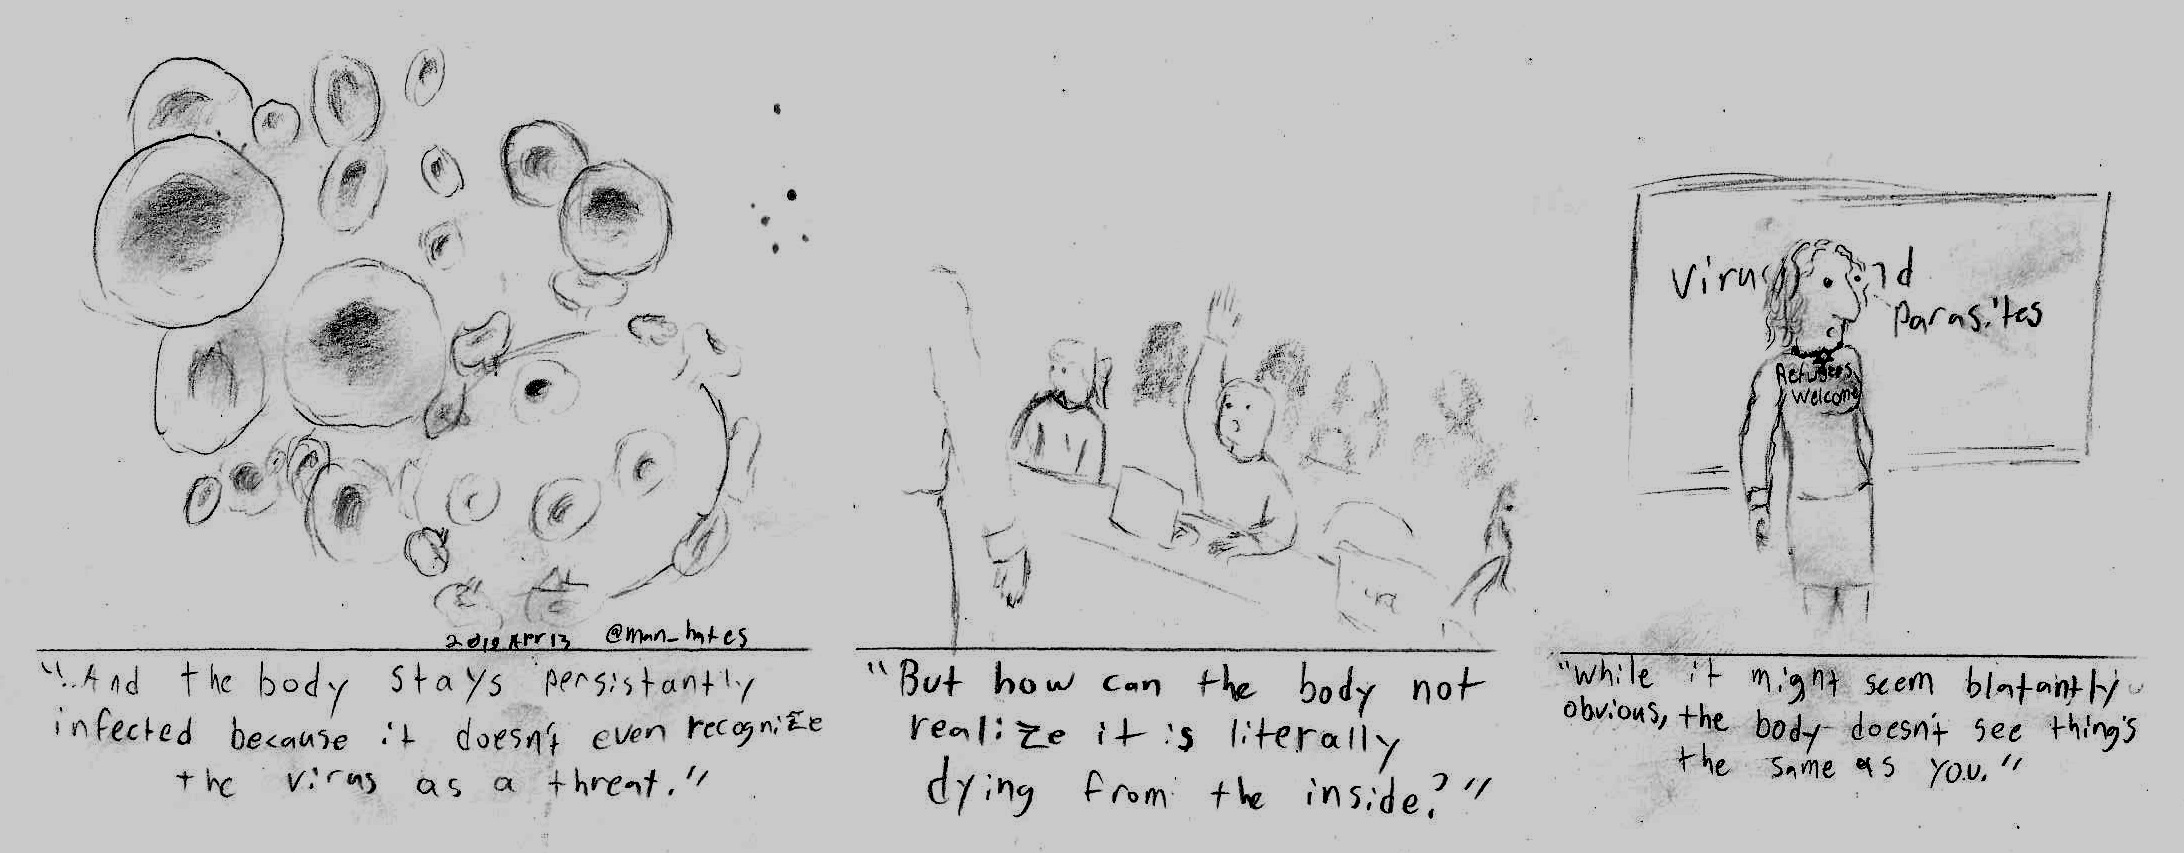 2019 Apr 13 @man_hates
"..And the body stays persistantly
infected because it doesn't even recognize
the virus as a threat."
"But how can the body not
realize it is literally
dying from the inside?"
Virus nd
Parasites
Refugees
Welcome
"While it might seem blatantly
obvious, the body doesn't see thing's
the same as you."